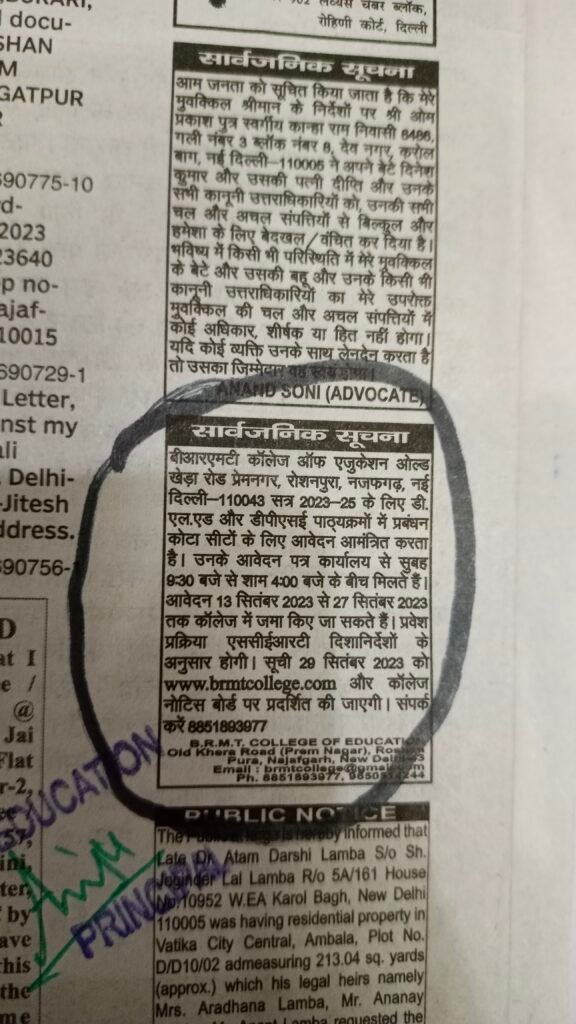 docu-
SHAN
M
GATPUR
R
690775-10
rd-
2023
23640
p no-
ajaf-
10015
690729-1
Letter,
nst my
ali
, Delhi-
-Jitesh
ddress.
690756-1
D
at I
e /
@
Jai
Flat
r-2,
ini,
ter,
by
ave
this
the
me
ब्लॉक,
रोहिणी कोर्ट, दिल्ली
सार्वजनिक सूचना
आम जनता को सूचित किया जाता है कि मेरे
मुवक्किल श्रीमान के निर्देशों पर श्री ओम
प्रकाश पुत्र स्वर्गीय कान्हा राम निवासी 6466,
गली नंबर 3 ब्लॉक नंबर 8, देव नगर, करोल
बाग, नई दिल्ली-110005 ने अपने बेटे दिनेश
कुमार और उसकी पत्नी दीप्ति और उनके
सभी कानूनी उत्तराधिकारियों को, उनकी सभी
चल और अचल संपत्तियों से बिल्कुल और
हमेशा के लिए बेदखल/वंचित कर दिया है।
भविष्य में किसी भी परिस्थिति में मेरे मुवक्किल
के बेटे और उसकी बहू और उनके किसी भी
कानूनी उत्तराधिकारियों का मेरे उपरोक्त
मुवक्किल की चल और अचल संपत्तियों में
कोई अधिकार, शीर्षक या हित नहीं होगा।
यदि कोई व्यक्ति उनके साथ लेनदेन करता है
तो उसका जिम्मेदार वह स्वयं होगा।
ANAND SONI (ADVOCATE)
सार्वजनिक सूचना
बीआरएमटी कॉलेज ऑफ एजुकेशन ओल्ड
खेड़ा रोड प्रेमनगर, रोशनपुरा, नजफगढ़, नई
दिल्ली-110043 सत्र 2023-25 के लिए डी.
एल.एड और डीपीएसई पाठ्यक्रमों में प्रबंधन
कोटा सीटों के लिए आवेदन आमंत्रित करता
है। उनके आवेदन पत्र कार्यालय से सुबह
9:30 बजे से शाम 4:00 बजे के बीच मिलते हैं।
आवेदन 13 सितंबर 2023 से 27 सितंबर 2023
तक कॉलेज में जमा किए जा सकते हैं। प्रवेश
प्रक्रिया एससीईआरटी दिशानिर्देशों के
अनुसार होगी। सूची 29 सितंबर 2023 को
www.brmtcollege.com और कॉलेज
नोटिस बोर्ड पर प्रदर्शित की जाएगी। संपर्क
करें 8851893977
B.R.M.T. COLLEGE OF EDUCATION
Old Khera Road (Prem Nagar), Roshan
Pura, Najafgarh, New Delhi-43
Email : brmtcollege@gmail.com
Ph. 8851893977,
EDUCATION
PRINCIPAL
PUBLIC NOTICE
The Public at large is hereby informed that
Late Dr. Atam Darshi Lamba S/o Sh.
Joginder Lal Lamba R/o 5A/161 House
No.10952 W.EA Karol Bagh, New Delhi
110005 was having residential property in
Vatika City Central, Ambala, Plot No.
D/D10/02 admeasuring 213.04 sq. yards
(approx.) which his legal heirs namely
Mrs. Aradhana Lamba, Mr. Ananay
Lamba requested the